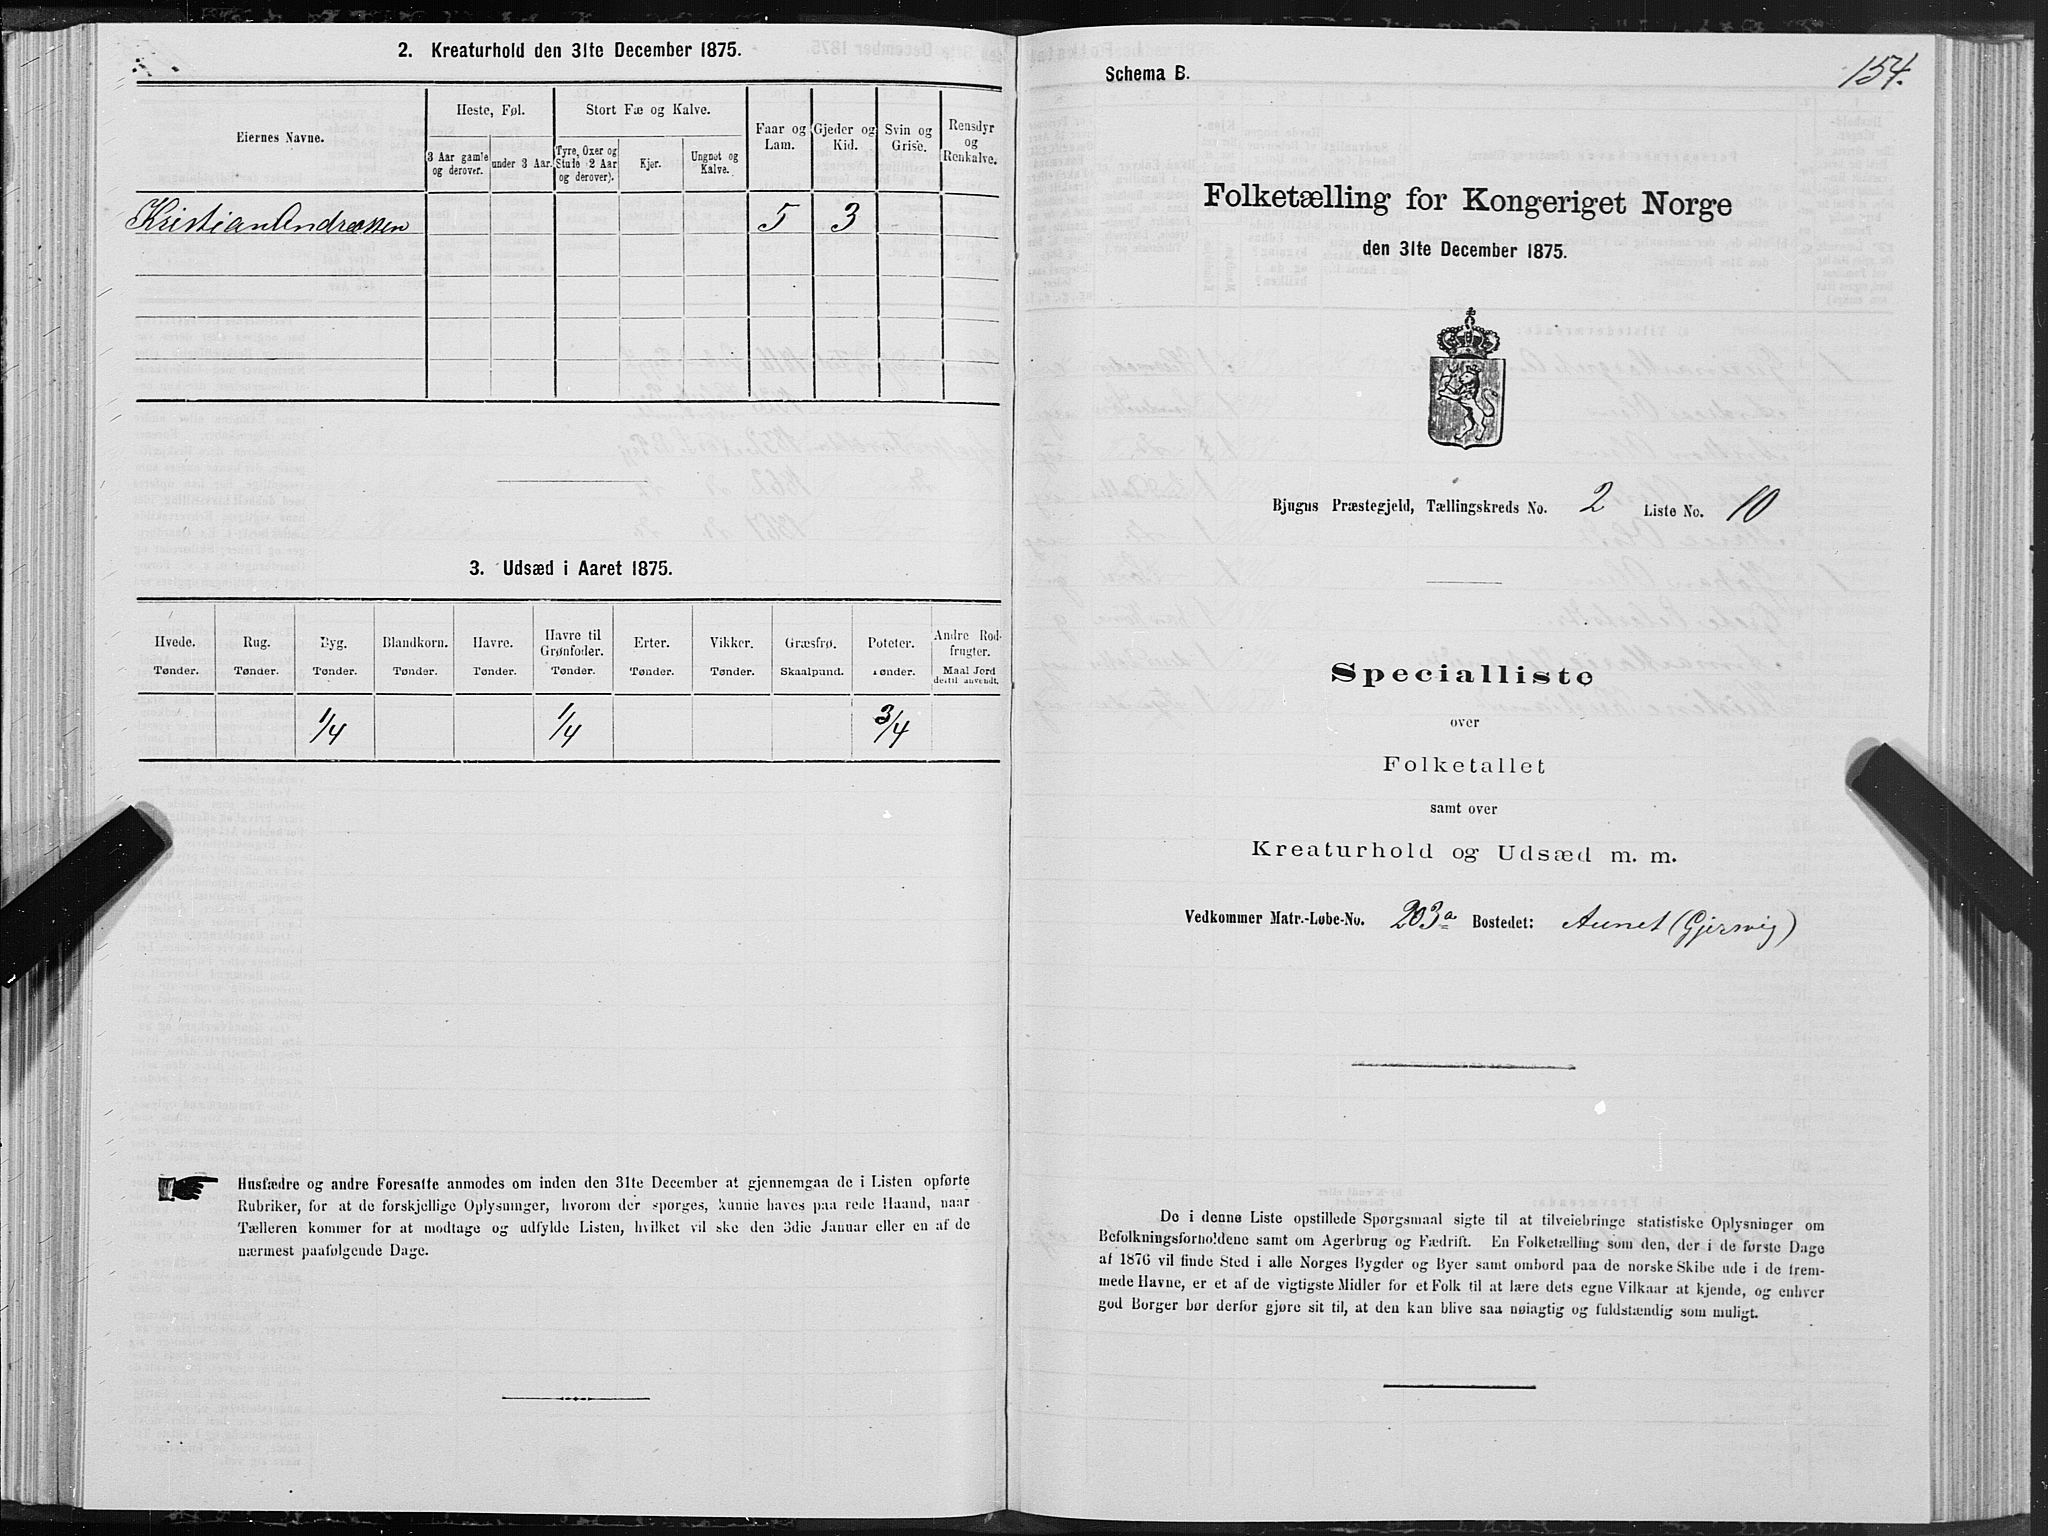 2. Kreaturhold den 31te December 1875.
Eiernes Navne.
Heste, Føl.
Stort Fæ og Kalve.
Faar og Lam.
Gjeder og Kid.
Svin og Grise.
Rensdyr og Renkalve.
3 Aar gamle og derover.
under 3 Aar.
Tyre, Oxer og Stude (2 Aar og derover).
Kjør.
Ungnøt og Kalve.
Kristian Andreassen 5 3
3. Udsæd i Aaret 1875.
Hvede. Rug. Byg. Blandkorn. Havre. Havre til Grønfoder. Erter. Vikker. Græsfrø. Poteter. Andre Rodfrugter.
Tønder. Tønder. Tønder. Tønder. Tønder. Tønder. Tønder. Tønder. Skaalpund. Tønder. Maal Jord dertil anvendt.
1/4 1/4 3/4
Husfædre og andre Foresatte anmodes om inden den 31te December at gjennemgaa de i Listen opførte
Rubriker, for at de forskjellige Oplysninger, hvorom der spørges, kunne haves paa rede Haand, naar
Tælleren kommer for at modtage og udfylde Listen, hvilket vil ske den 3die Januar eller en af de
nærmest paafølgende Dage.
154.
Schema B.
Folketælling for Kongeriget Norge
den 31te December 1875.
Bjugns Præstegjeld, Tællingskreds No. 2 Liste No. 10
Specialliste
over
Folketallet
samt over
Kreaturhold og Udsæd m. m.
Vedkommer Matr.-Løbe-No. 203a Bostedet: Aunet (Gjersvig)
De i denne Liste opstillede Spørgsmaal sigte til at tilveiebringe statistiske Oplysninger om
Befolkningsforholdene samt om Agerbrug og Fædrift. En Folketælling som den, der i de første Dage
af 1876 vil finde Sted i alle Norges Bygder og Byer samt ombord paa de norske Skibe ude i de frem-
mede Havne, er et af de vigtigste Midler for et Folk til at lære dets egne Vilkaar at kjende, og enhver
god Borger bør derfor gjøre sit til, at den kan blive saa nøiagtig og fuldstændig som muligt.